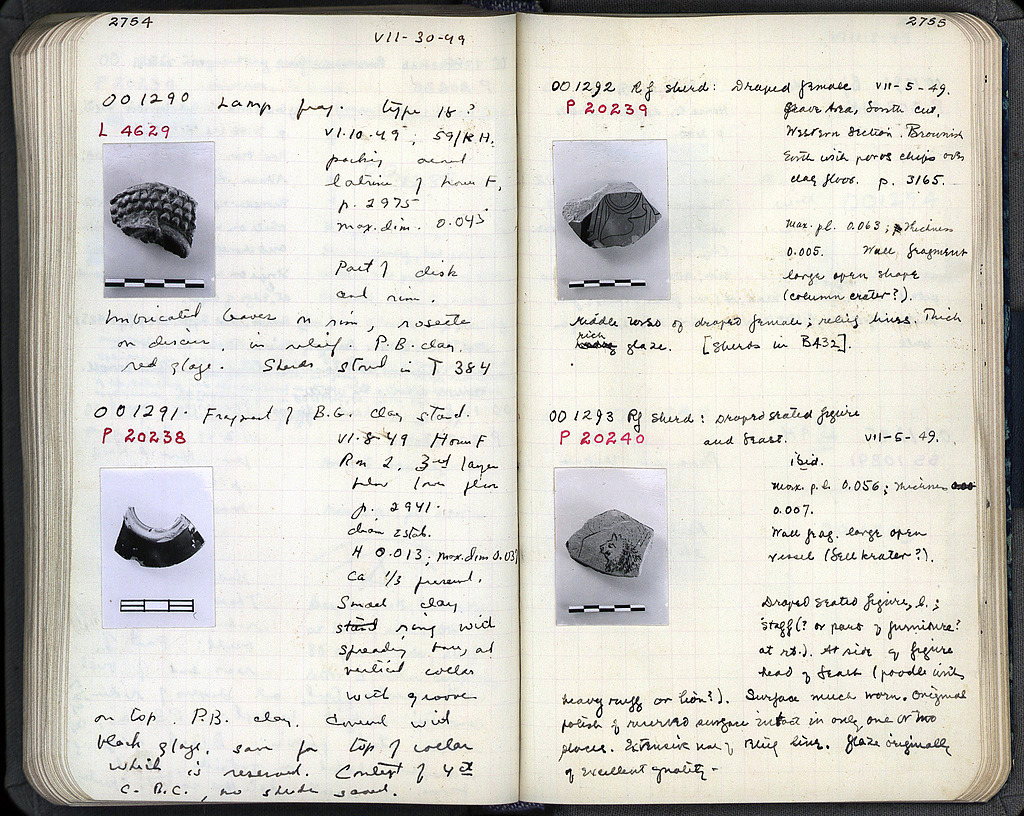 2754
VII-30-49
OO 1290 Lamp frag. type 18?
L 4629
VI.10.49; 59/KH.
packing around
latrine of House F,
p. 2975
max. dim. 0.045
Part of disk
and rim.
Imbricated leaves on rim, rosette
on discus, in relief. P.B. clay,
red glaze. Sherds stored in T 384
OO 1291. Fragment of B.G. clay stand.
P 20238
VI-8-49 House F
Rm 2, 3rd layer
p. 2941.
H 0.013; max. dim 0.03
Ca 1/3 present.
Small clay
stand ring with
spreading base, at
vertical collar
with groove
on top. P.B. clay. Covered with
black glaze, save for top of collar
which is reserved. Context of 4th
C. B.C., no sherds saved.
2755
OO 1292 Rf sherd: Draped female VII-5-49.
P 20239
Grave Area, South cut,
Western Section. Brownish
Earth with poros chips over
clay floor. p. 3165.
Max. p.l. 0.063; thickness
0.005. Wall fragment
large open shape
(column crater?).
Middle torso of draped female; relief lines. Thick
rich
glaze. [Sherds in B432].
OO 1293 Rf Sherd: Draped seated figure
P 20240
and beast. VII-5-49.
ibid.
Max. p.l. 0.056; thickness 0.00
0.007.
Wall frag. large open
vessel (bell krater?).
Draped seated figure, l.;
staff (? or part of furniture?
at rt.). At side of figure
head of beast (poodle with
heavy ruff or lion?). Surface much worn. Original
polish of reserved surface intact in only one or two
places. Extensive use of relief line. Glaze originally
of excellent quality-